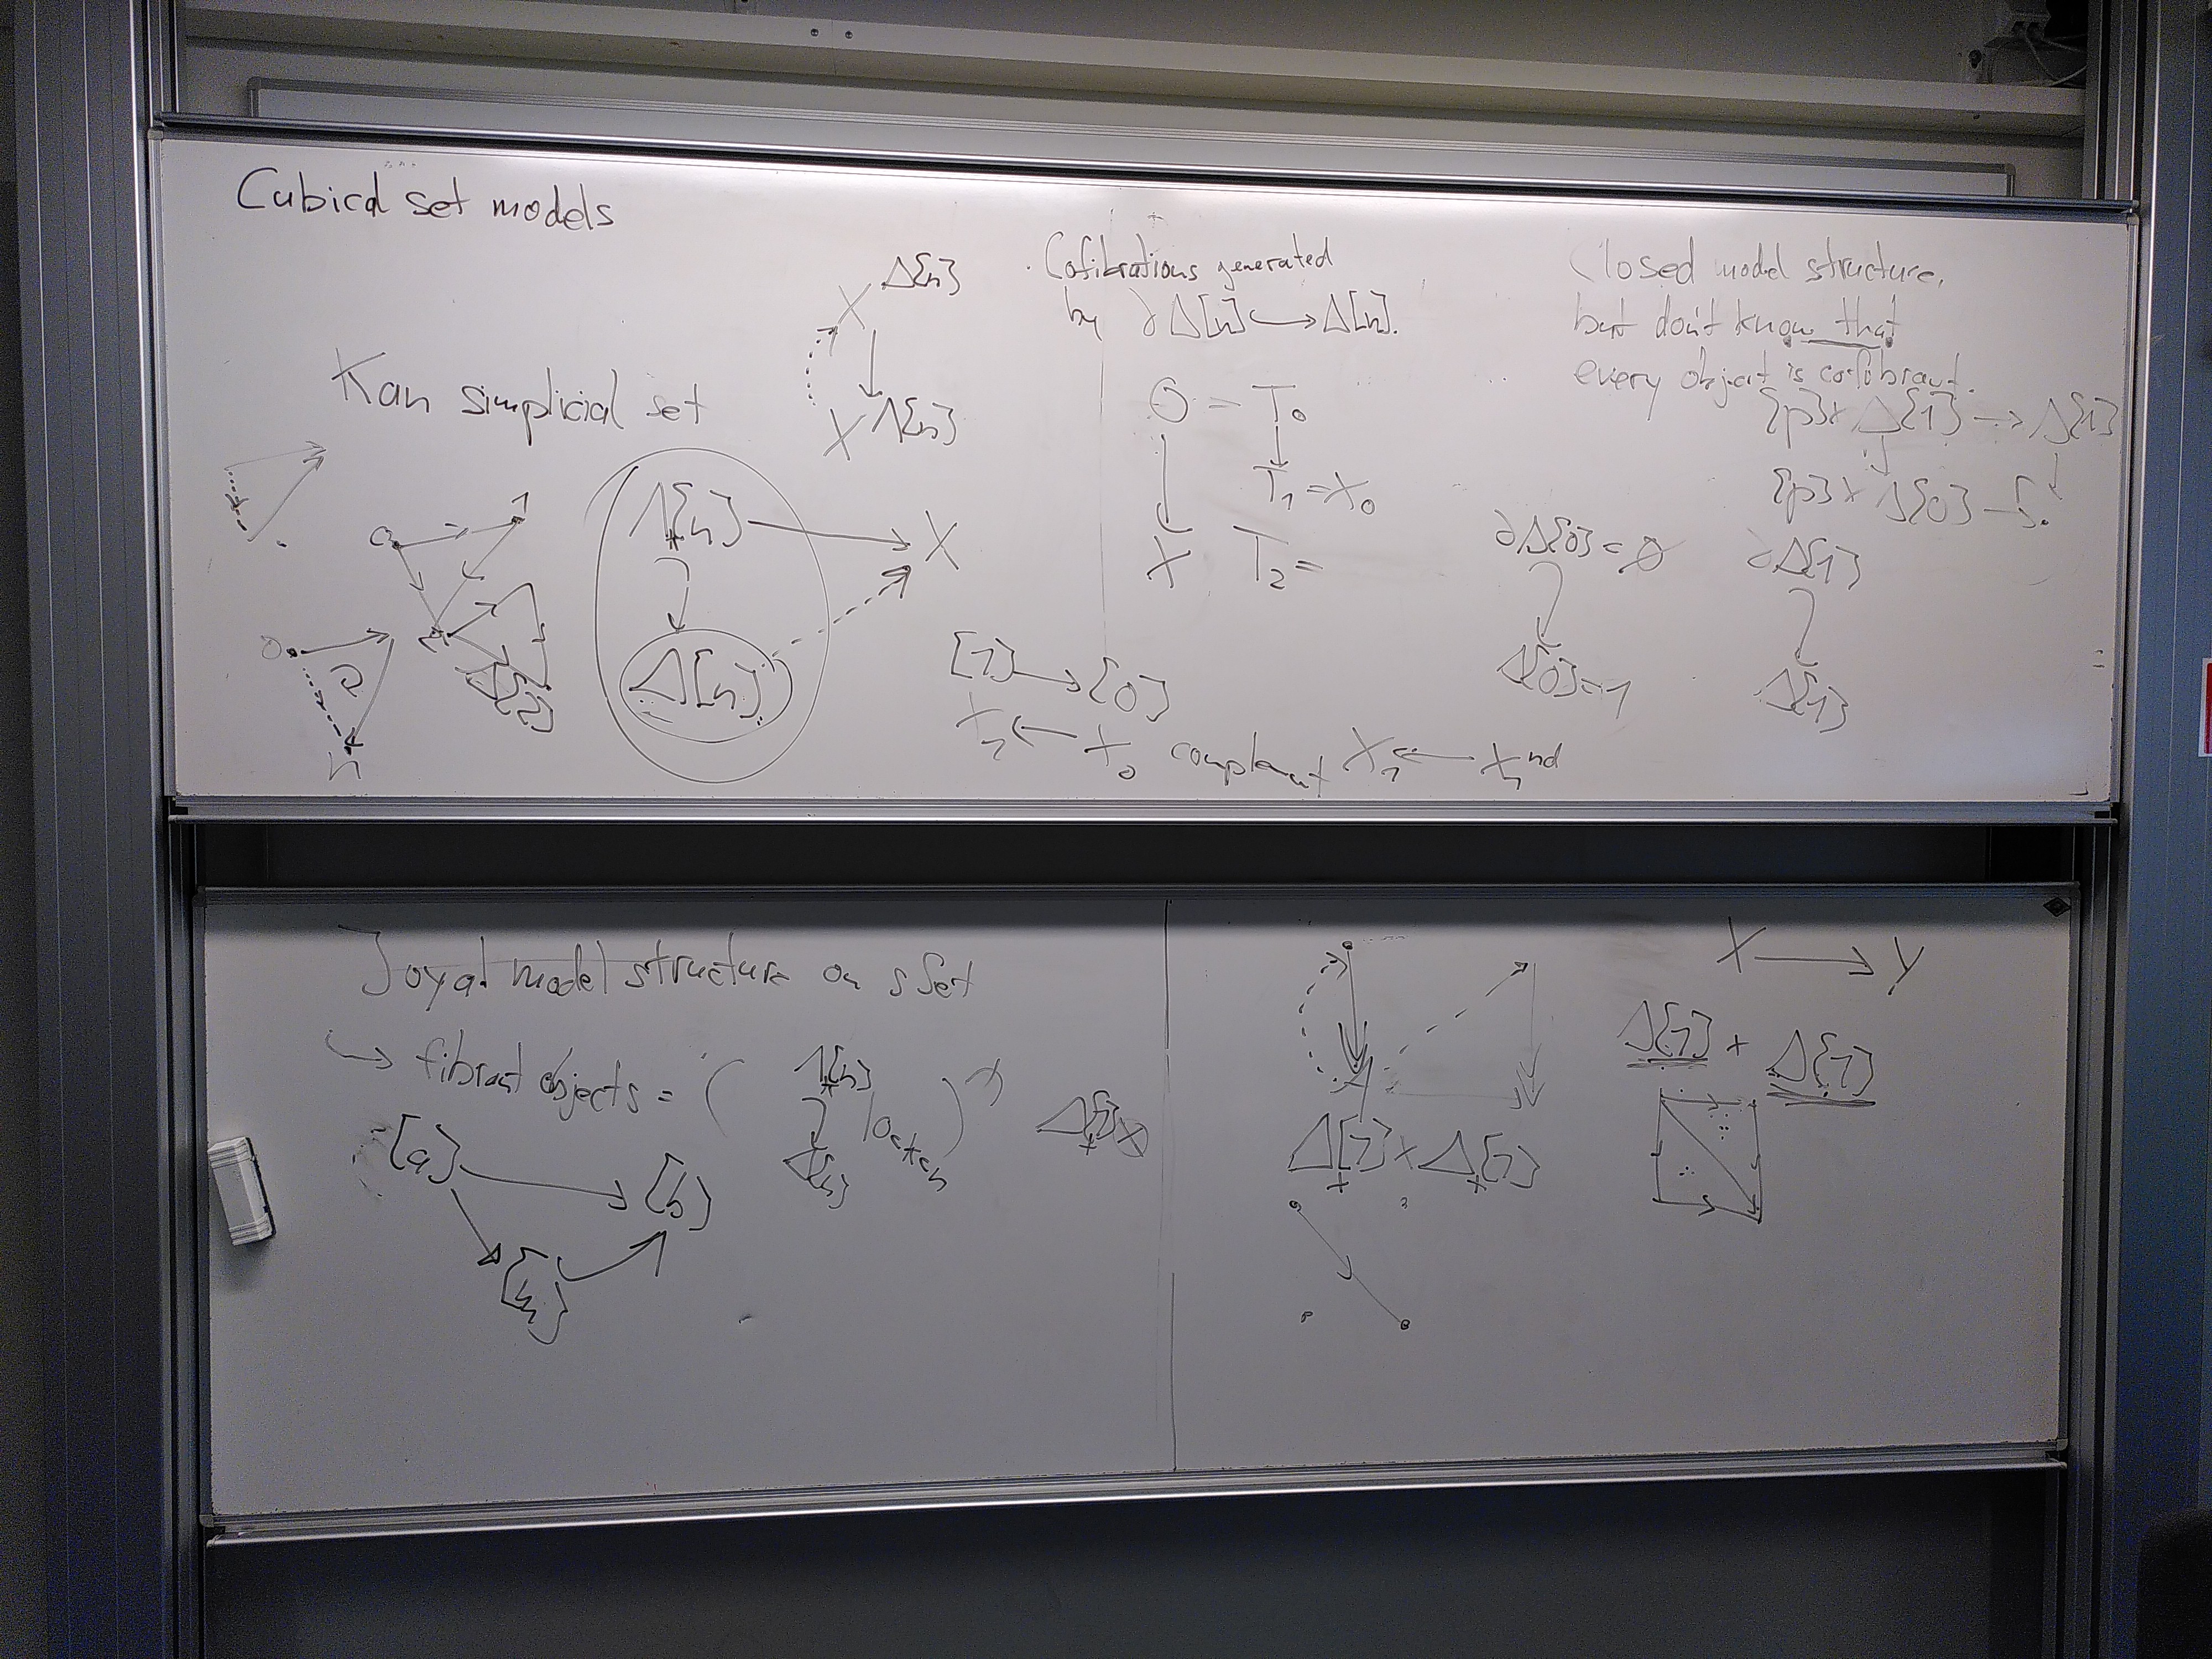 Cubical set models
Kan simplicial set
X^Δ[n]
X^Λ[n]
Λ_k[n] → X
Δ[n]
0
n
Δ[2]
Cofibrations generated
by ∂Δ[n] ↪ Δ[n].
0 = T₀
T₁ = X₀
X T₂ =
[1] → [0]
X₁ ← X₀ complement X₁ ← X₁^nd
Closed model structure,
but don't know that
every object is cofibrant.
{p} × Δ[1] → Δ[1]
{p} × Δ[0] → S.
∂Δ[0] = ∅
Δ[0] = 1
∂Δ[1]
Δ[1]
Joyal model structure on sSet
↪ fibrant objects = ( Λ_k[n] Δ[n] | 0<k<n )
[a] → [b]
[n]
X → Y
Δ[1] × Δ[1]
Δ[1] × Δ[1]